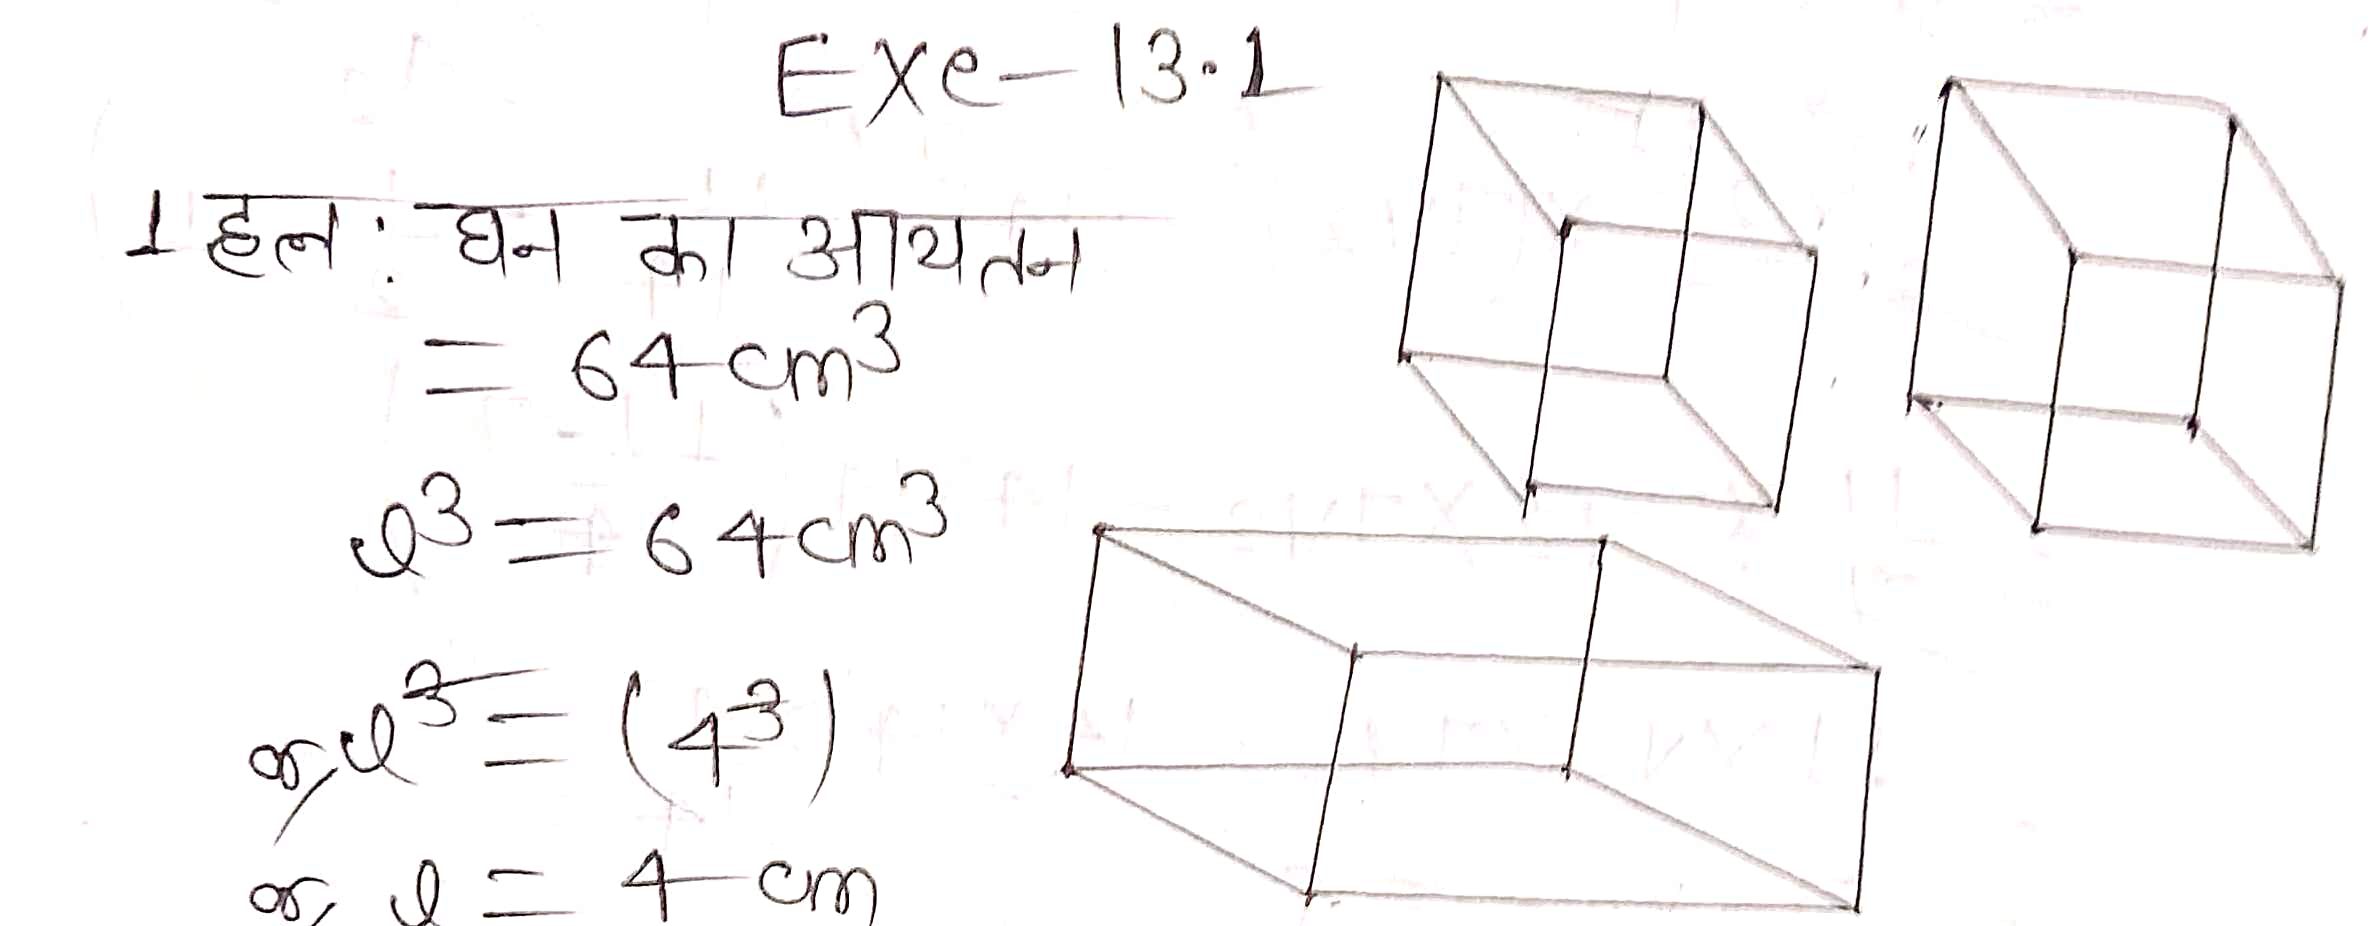 Exe-13.1
1 हल: घन का आयतन
= 64 cm³
l³ = 64 cm³
or, l³ = (4³)
or, l = 4 cm